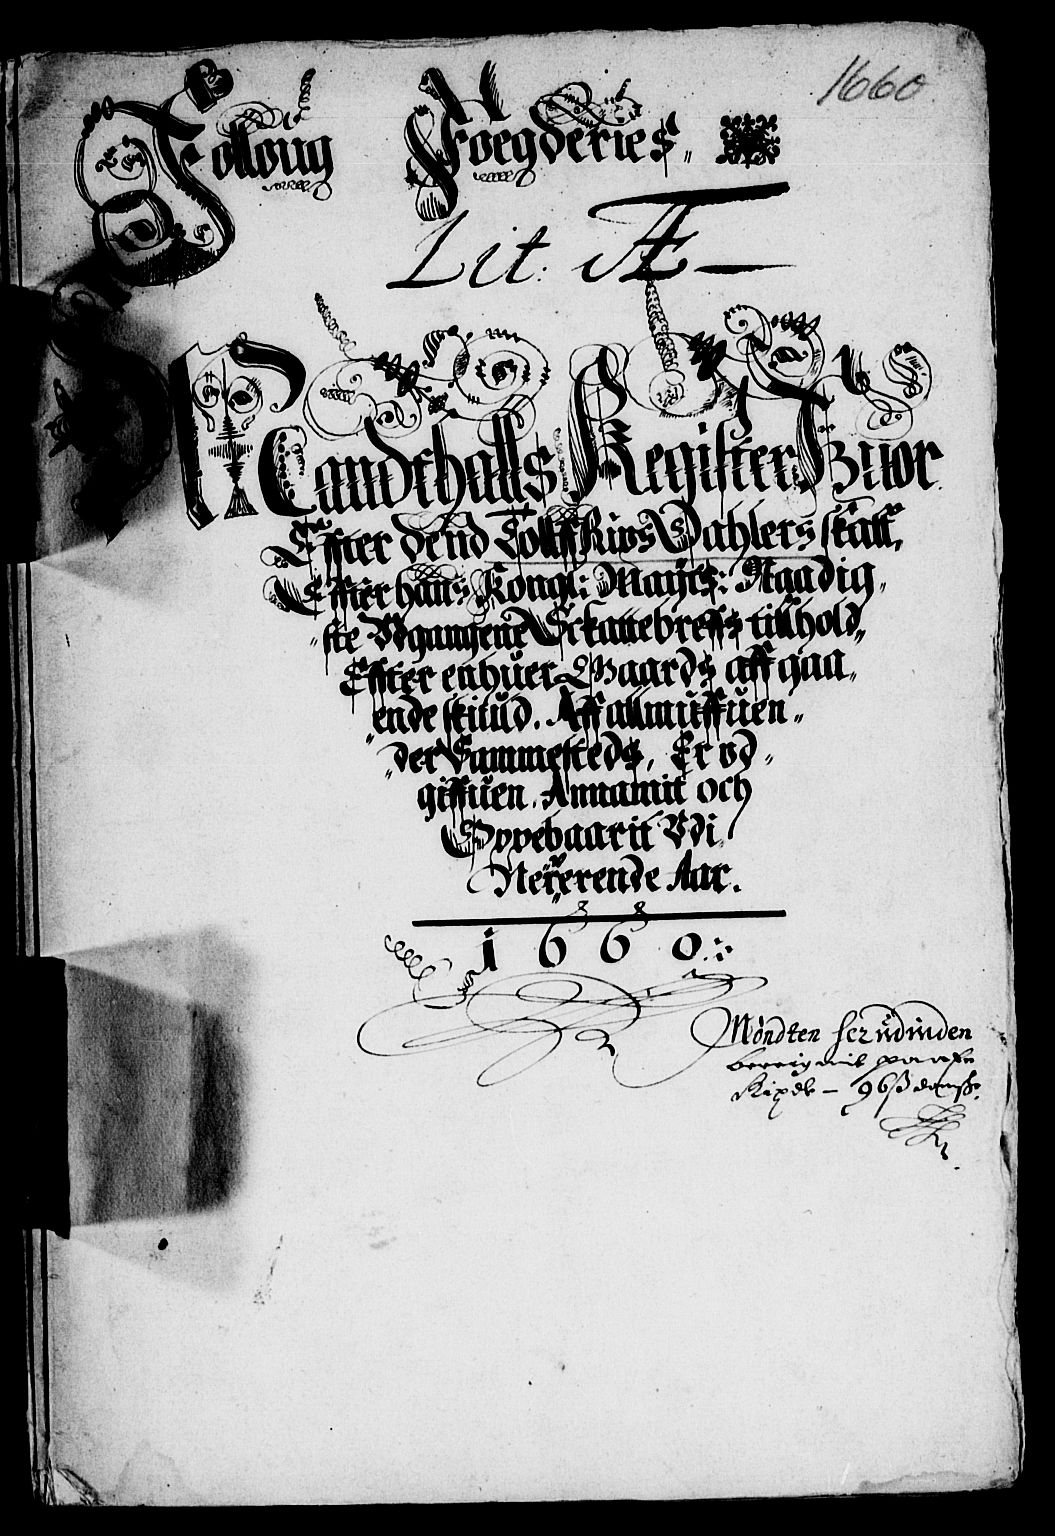 1660
Follow Foegderies
Lit: Æ
Mandthalls Register Huor
Effter dend Tolff Rixs Dahlers skatt,
Effter hans Kongl: Mayts: Naadig-
ste Vdgangene Skattebreffs tillhold,
Effter enhuer Gaards aff gaa-
ende skiuld. Aff allmuffuen-
der Sammesteds, Er vd-
giffuen. Annamit och
Oppebaarit Vdi
Nerverende Aar.
1660
Möndten
Rixdr – 96 ß danske.